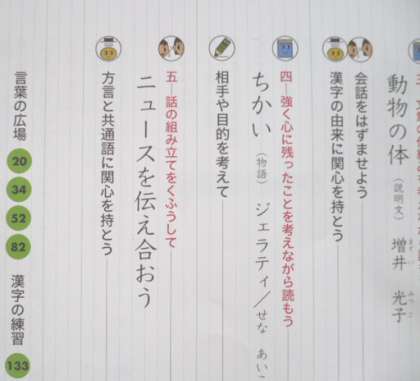 動物の体（説明文）増井　光子
会話をはずませよう
漢字の由来に関心を持とう
四　強く心に残ったことを考えながら読もう
ちかい（物語）ジェラティ／せな　あい
相手や目的を考えて
五　話の組み立てをくふうして
ニュースを伝え合おう
方言と共通語に関心を持とう
言葉の広場 20 34 52 82 漢字の練習 133